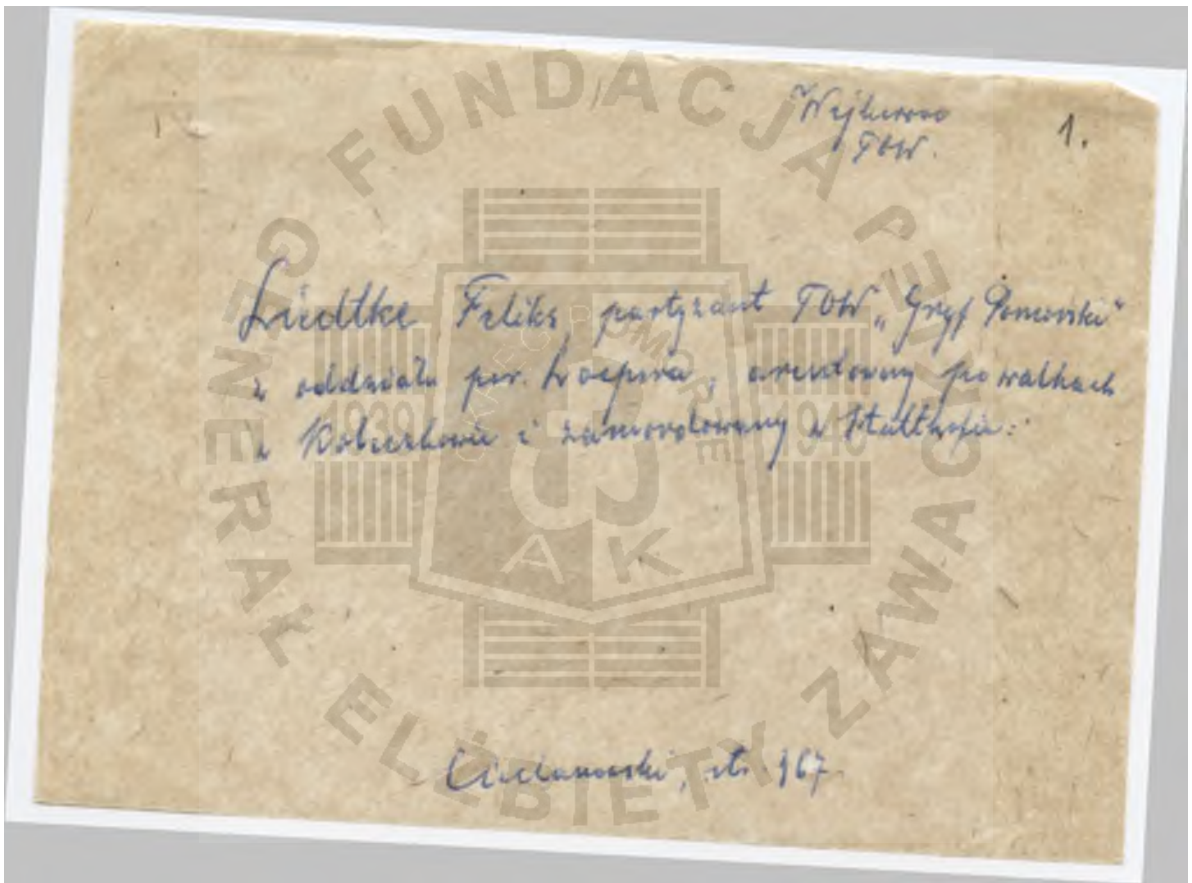 Wejherowo
TOW.
1.
Liedtke Feliks, partyzant TOW „Gryf Pomorski"
z oddziału por. , aresztowany po walkach
w Kobuszkowie i zamordowany w Stutthofie.
Ciechanowski, str. 167.
FUNDACJA GENERAŁ ELŻBIETY ZAWACKIEJ
ARCHIWUM POMORSKIE
1939 1945
AK